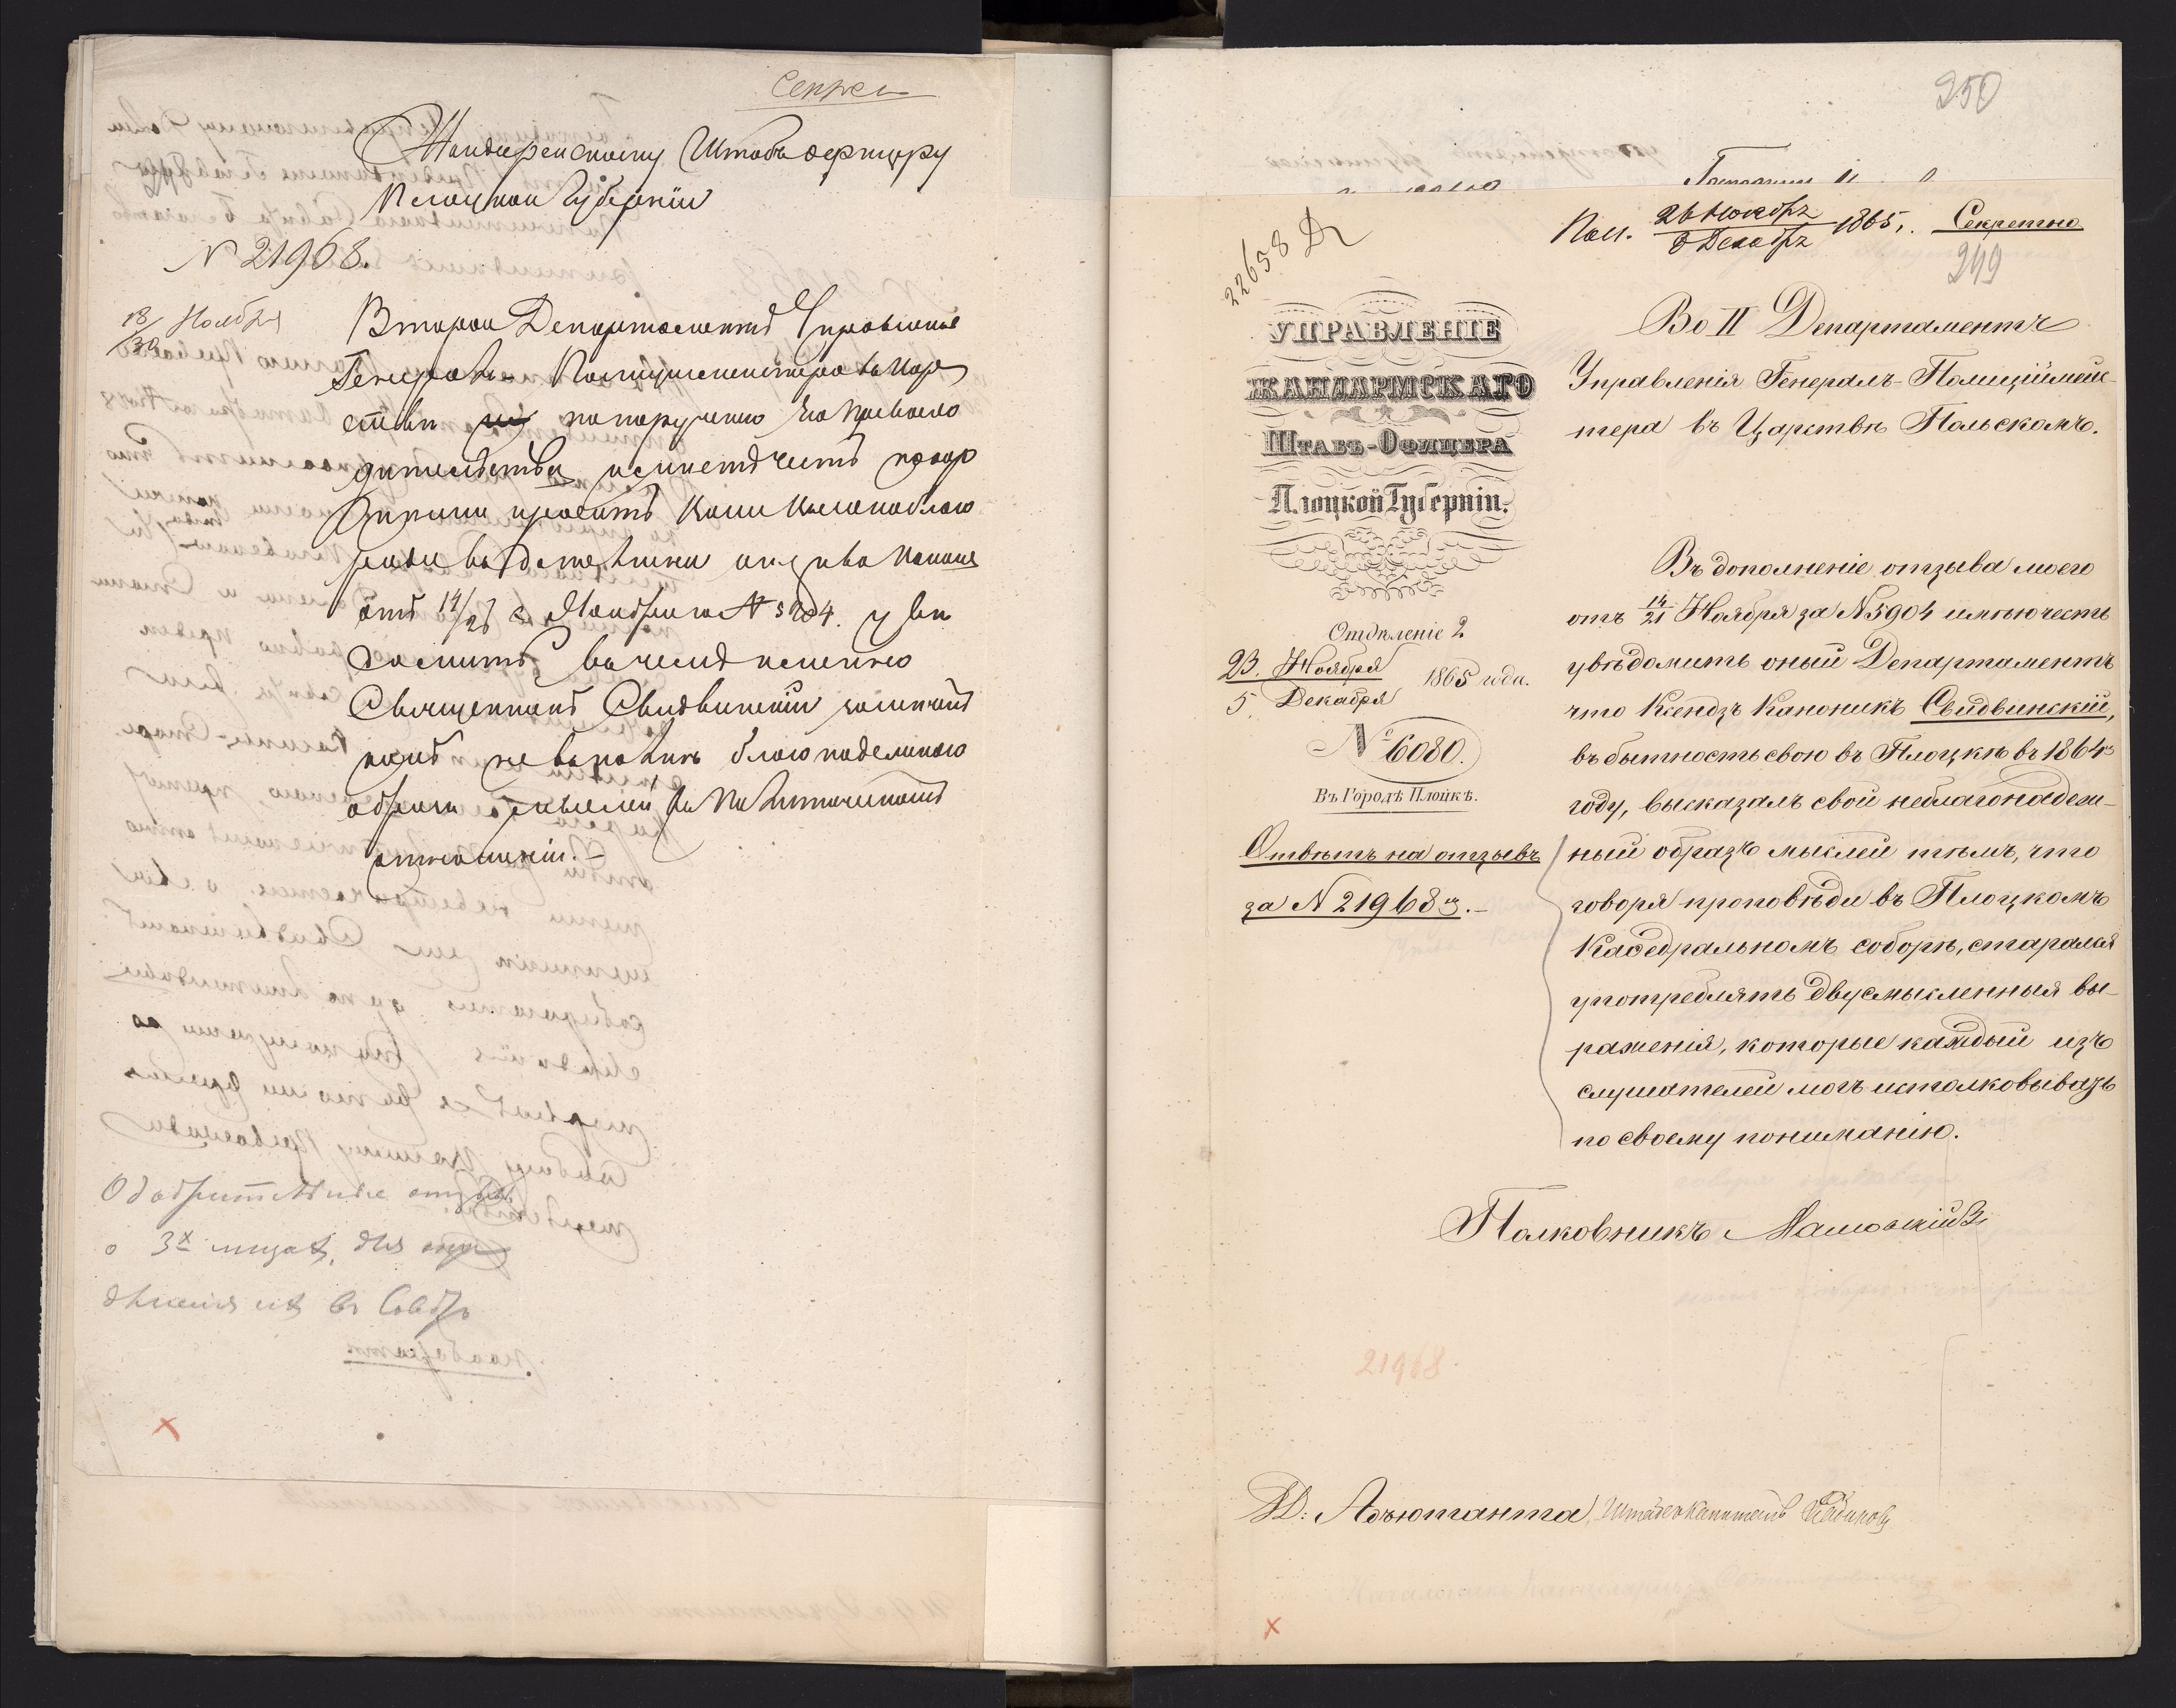 Секрет
Жандармскому Штабъ офицеру
Плоцкой Губерніи
N 21968.
18/30 Ноября
Второй Департаментъ Управленія
Генералъ-Полицмейстера въ Цар
ствѣ по порученію Его Превосхо
дительства имѣетъ честь покор
нѣйше просить Ваше Высокоблаго
родіе въ дополненіе отзыва Вашего
отъ 14/26 с. Ноября N 5904. увѣ
домить въ чемъ именно
Священникъ Свидвинскій
свой не вполнѣ благонадежный
образъ мыслей въ политическомъ
отношеніи.-
Одобрительные отзывы
о 3х лицахъ, для
дѣленія ихъ въ Соборъ
наоборотѣ
250
22658
Пол. 26 Ноября / 8 Декабря 1865. Секретно
249
УПРАВЛЕНІЕ
ЖАНДАРМСКАГО
ШТАБЪ-ОФИЦЕРА
Плоцкой Губерніи.
Отдѣленіе 2
23. Ноября / 5 Декабря 1865 года.
№ 6080.
Въ Городѣ Плоцкѣ.
Отвѣтъ на отзывъ
за N 21968й.-
Во II Департаментъ
Управленія Генералъ-Полиціймейс-
тера въ Царствѣ Польскомъ.
Въ дополненіе отзыва моего
отъ 14/21 Ноября за N 5904 имѣю честь
увѣдомить оный Департаментъ
что Ксендзъ Каноникъ Свидвинскій,
въ бытность свою въ Плоцкѣ въ 1864мъ
году, высказалъ свой неблагонадеж-
ный образъ мыслей тѣмъ, что
говоря проповѣди въ Плоцкомъ
Каѳедральномъ соборѣ, старался
употреблять двусмысленныя вы-
раженія, которые каждый изъ
слушателей могъ истолковывать
по своему пониманію.
Полковникъ
21968
Д: Адъютанта, Штабсъ Капитанъ